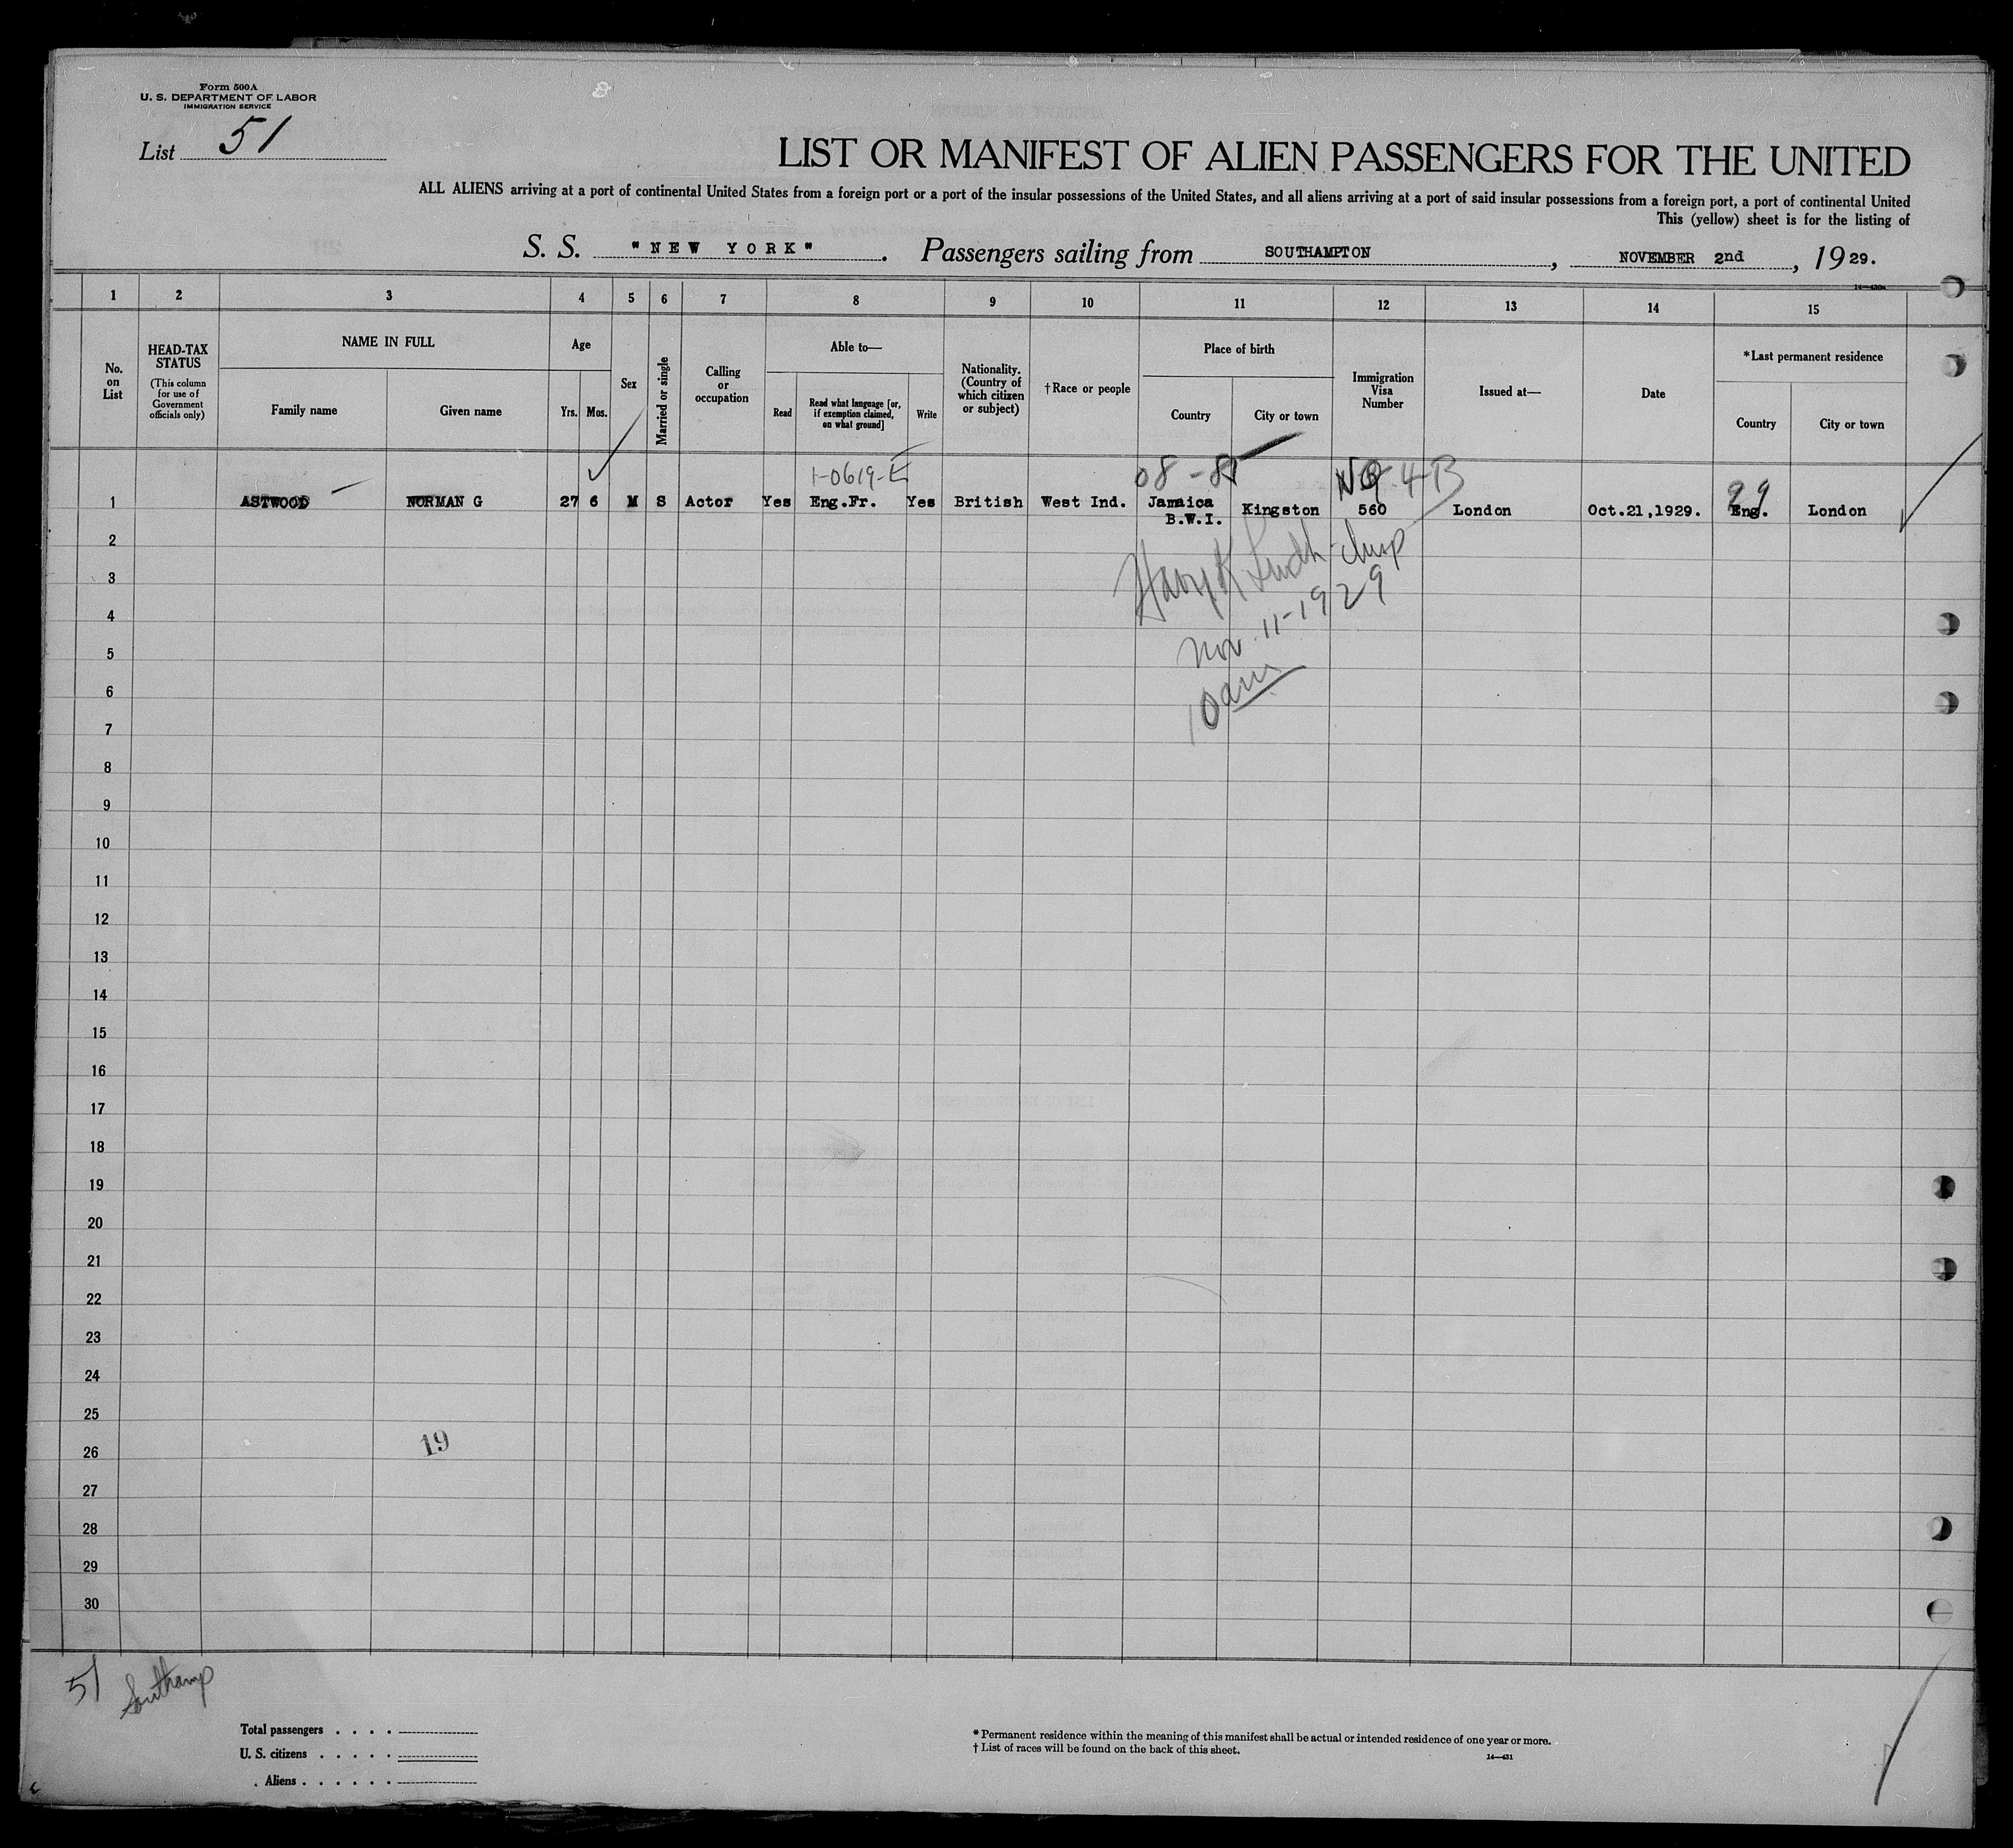 Form 500A
U. S. DEPARTMENT OF LABOR
IMMIGRATION SERVICE
List 51
LIST OR MANIFEST OF ALIEN PASSENGERS FOR THE UNITED
ALL ALIENS arriving at a port of continental United States from a foreign port or a port of the insular possessions of the United States, and all aliens arriving at a port of said insular possessions from a foreign port, a port of continental United
This (yellow) sheet is for the listing of
S. S. "NEW YORK". Passengers sailing from SOUTHAMPTON, NOVEMBER 2nd, 1929.
1 2 3 4 5 6 7 8 9 10 11 12 13 14 15
No. on List
HEAD-TAX STATUS
(This column for use of Government officials only)
NAME IN FULL
Family name
Given name
Age
Yrs.
Mos.
Sex
Married or single
Calling or occupation
Able to—
Read
Read what language [or, if exemption claimed, on what ground]
Write
Nationality. (Country of which citizen or subject)
†Race or people
Place of birth
Country
City or town
Immigration Visa Number
Issued at—
Date
*Last permanent residence
Country
City or town
08-8
1 ASTWOOD NORMAN G 27 6 M S Actor Yes Eng.Fr. Yes British West Ind. Jamaica B.W.I. Kingston 560 London Oct.21,1929. Eng. London
2
3
4
5
6
7
8
9
10
11
12
13
14
15
16
17
18
19
20
21
22
23
24
25
26
27
28
29
30
Nov. 11-1929
10 am
19
51 Southamp
Total passengers . . . .
U. S. citizens . . . . .
Aliens . . . . . .
* Permanent residence within the meaning of this manifest shall be actual or intended residence of one year or more.
† List of races will be found on the back of this sheet.
14—431